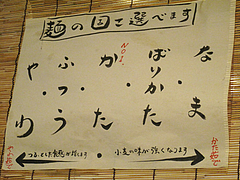 麺の固さ選べます
なま
ばりかた
NO1.
かた
ふつう
やわ
かた茹で
小麦の味が強くなります
つるっとした食感が増します
やわ茹で